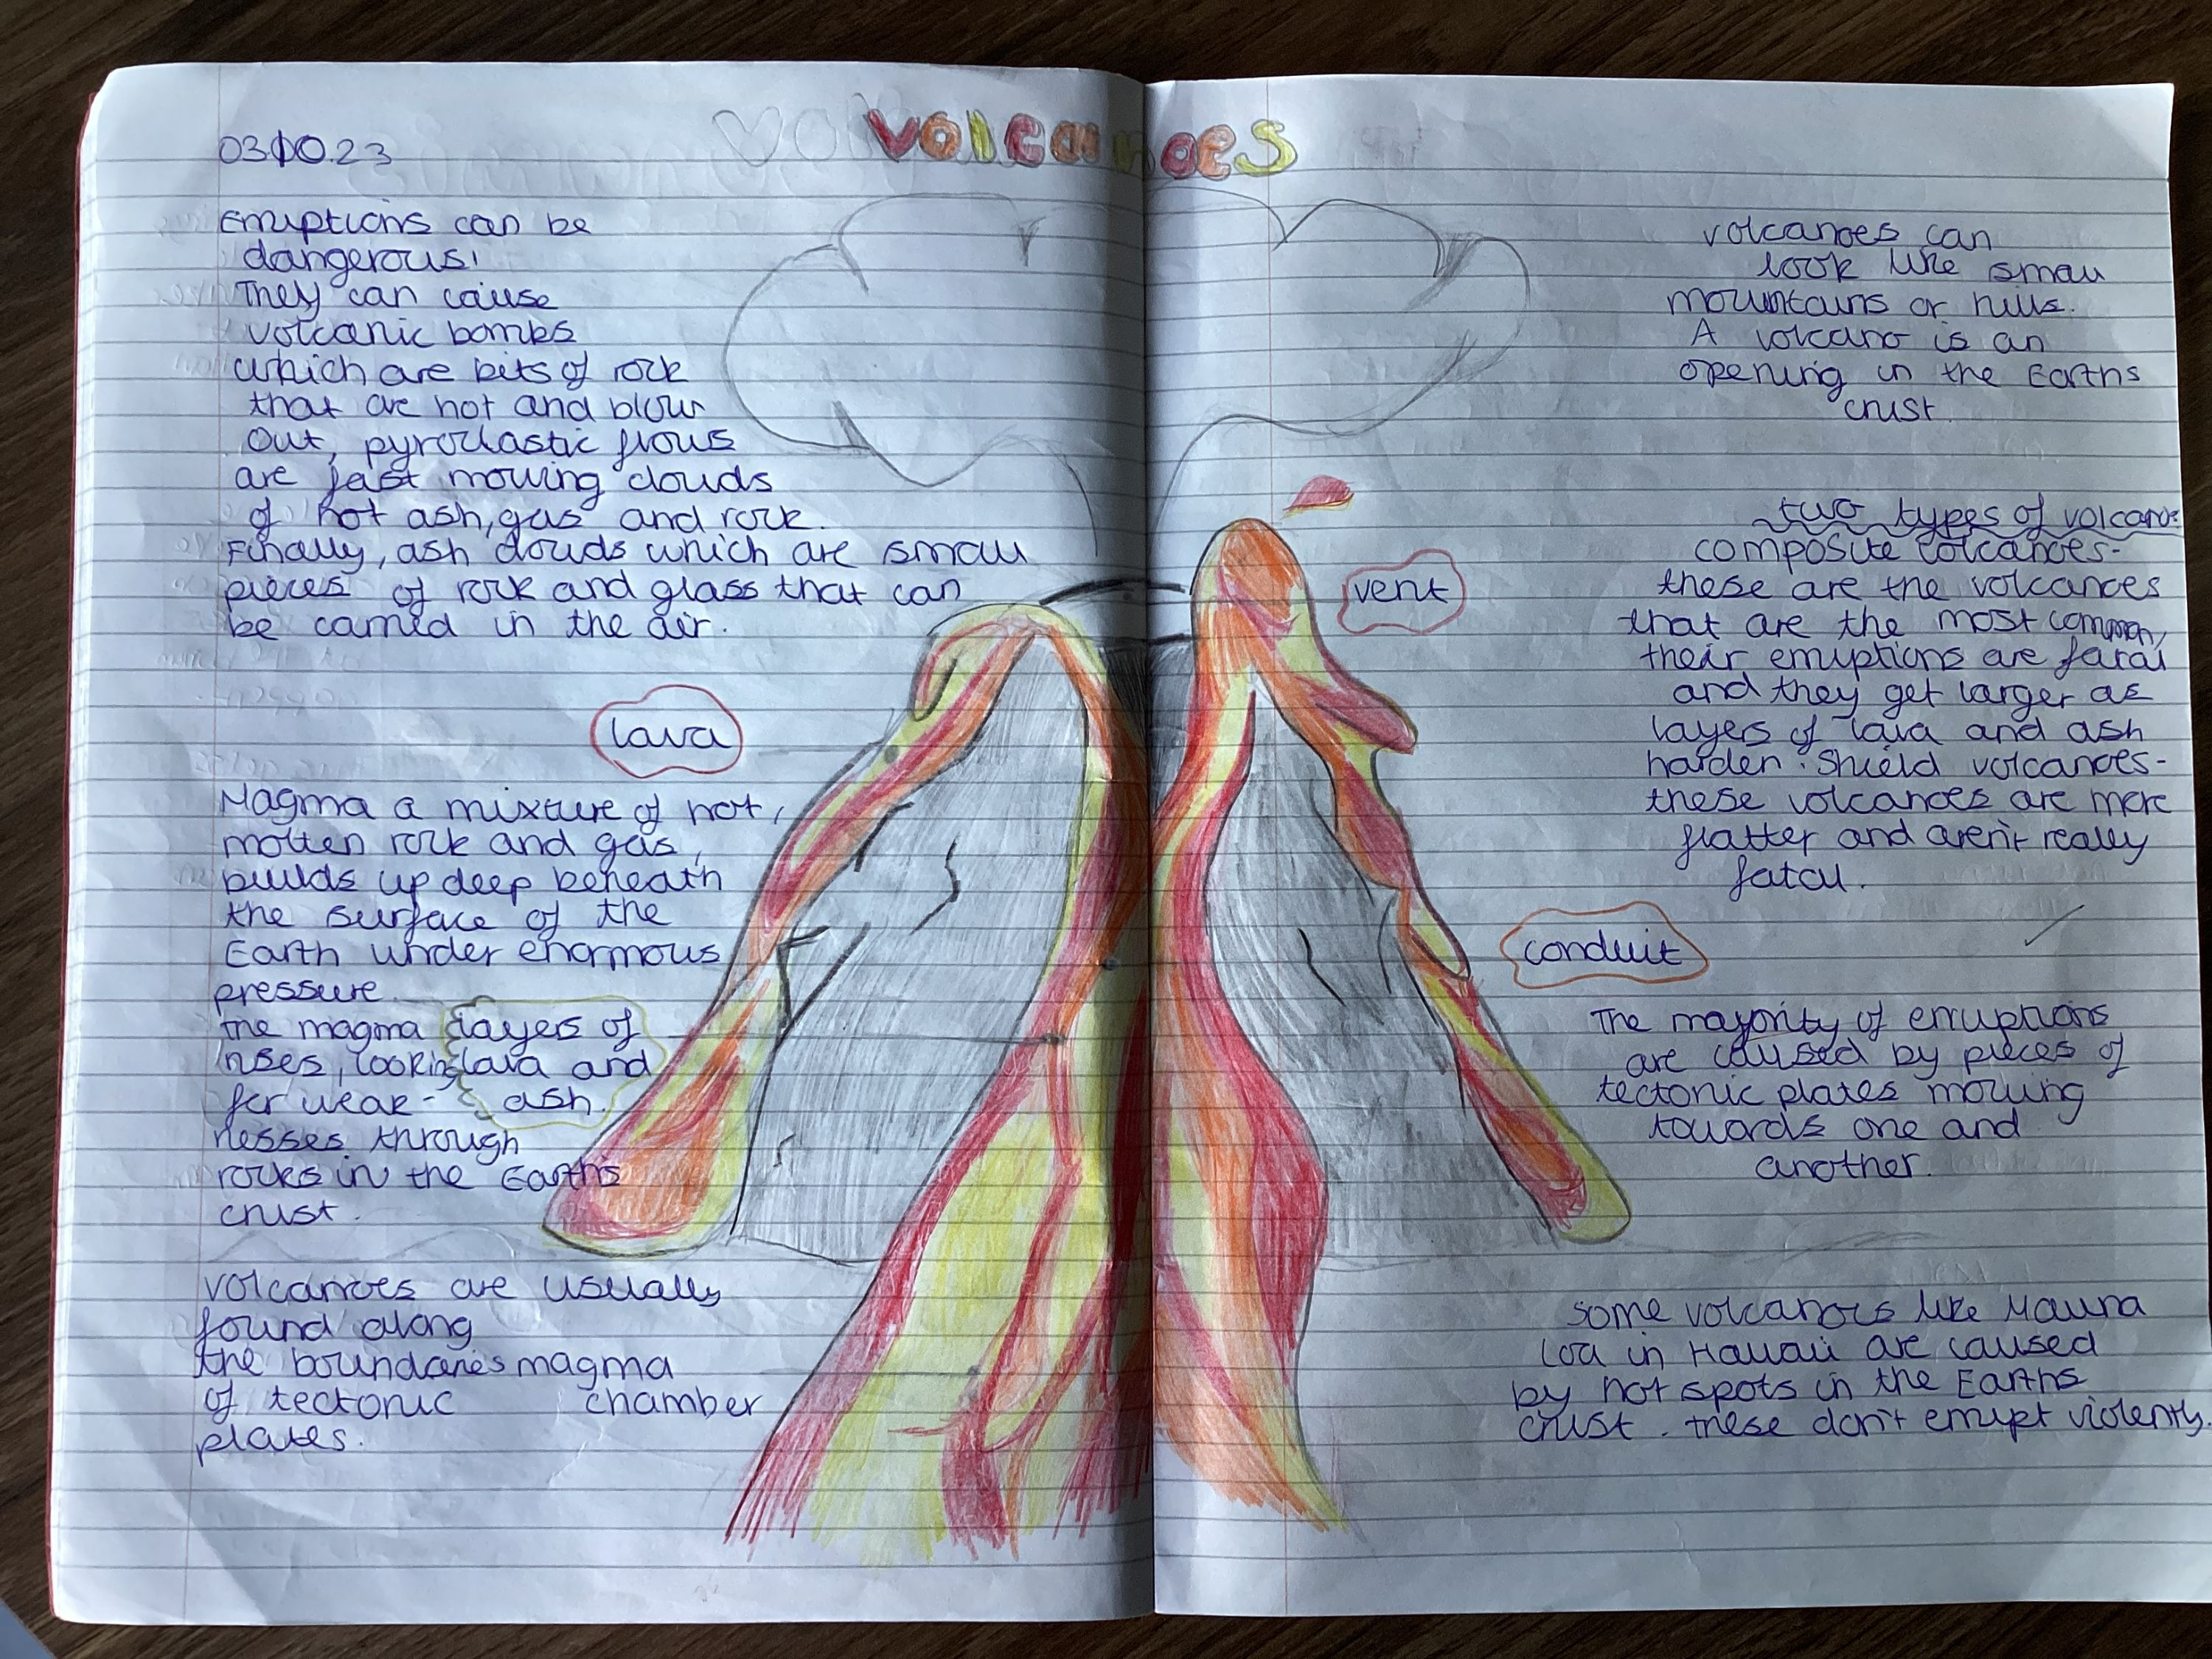 03.10.23
volcanoes
Eruptions can be
dangerous!
They can cause
volcanic bombs
which are bits of rock
that are hot and blow
out, pyroclastic flows
are fast moving clouds
of hot ash, gas and rock.
Finally, ash clouds which are small
pieces of rock and glass that can
be carried in the air.
lava
Magma a mixture of hot,
molten rock and gas,
builds up deep beneath
the surface of the
Earth under enormous
pressure.
the magma
rises, looking
for weak-
nesses through
rocks in the Earth's
crust.
layers of
lava and
ash.
volcanoes are usually
found along
the boundaries
of tectonic
plates.
magma
chamber
volcanoes can
look like small
mountains or hills.
A volcano is an
opening in the Earths
crust.
vent
two types of volcano:
composite volcanoes-
these are the volcanoes
that are the most common,
their eruptions are fatal
and they get larger as
layers of lava and ash
harden. Shield volcanoes-
these volcanoes are more
flatter and aren't really
fatal.
conduit
The majority of erruptions
are caused by pieces of
tectonic plates moving
towards one and
another.
some volcanoes like Mauna
Loa in Hawaii are caused
by hot spots in the Earths
crust. these don't errupt violently.